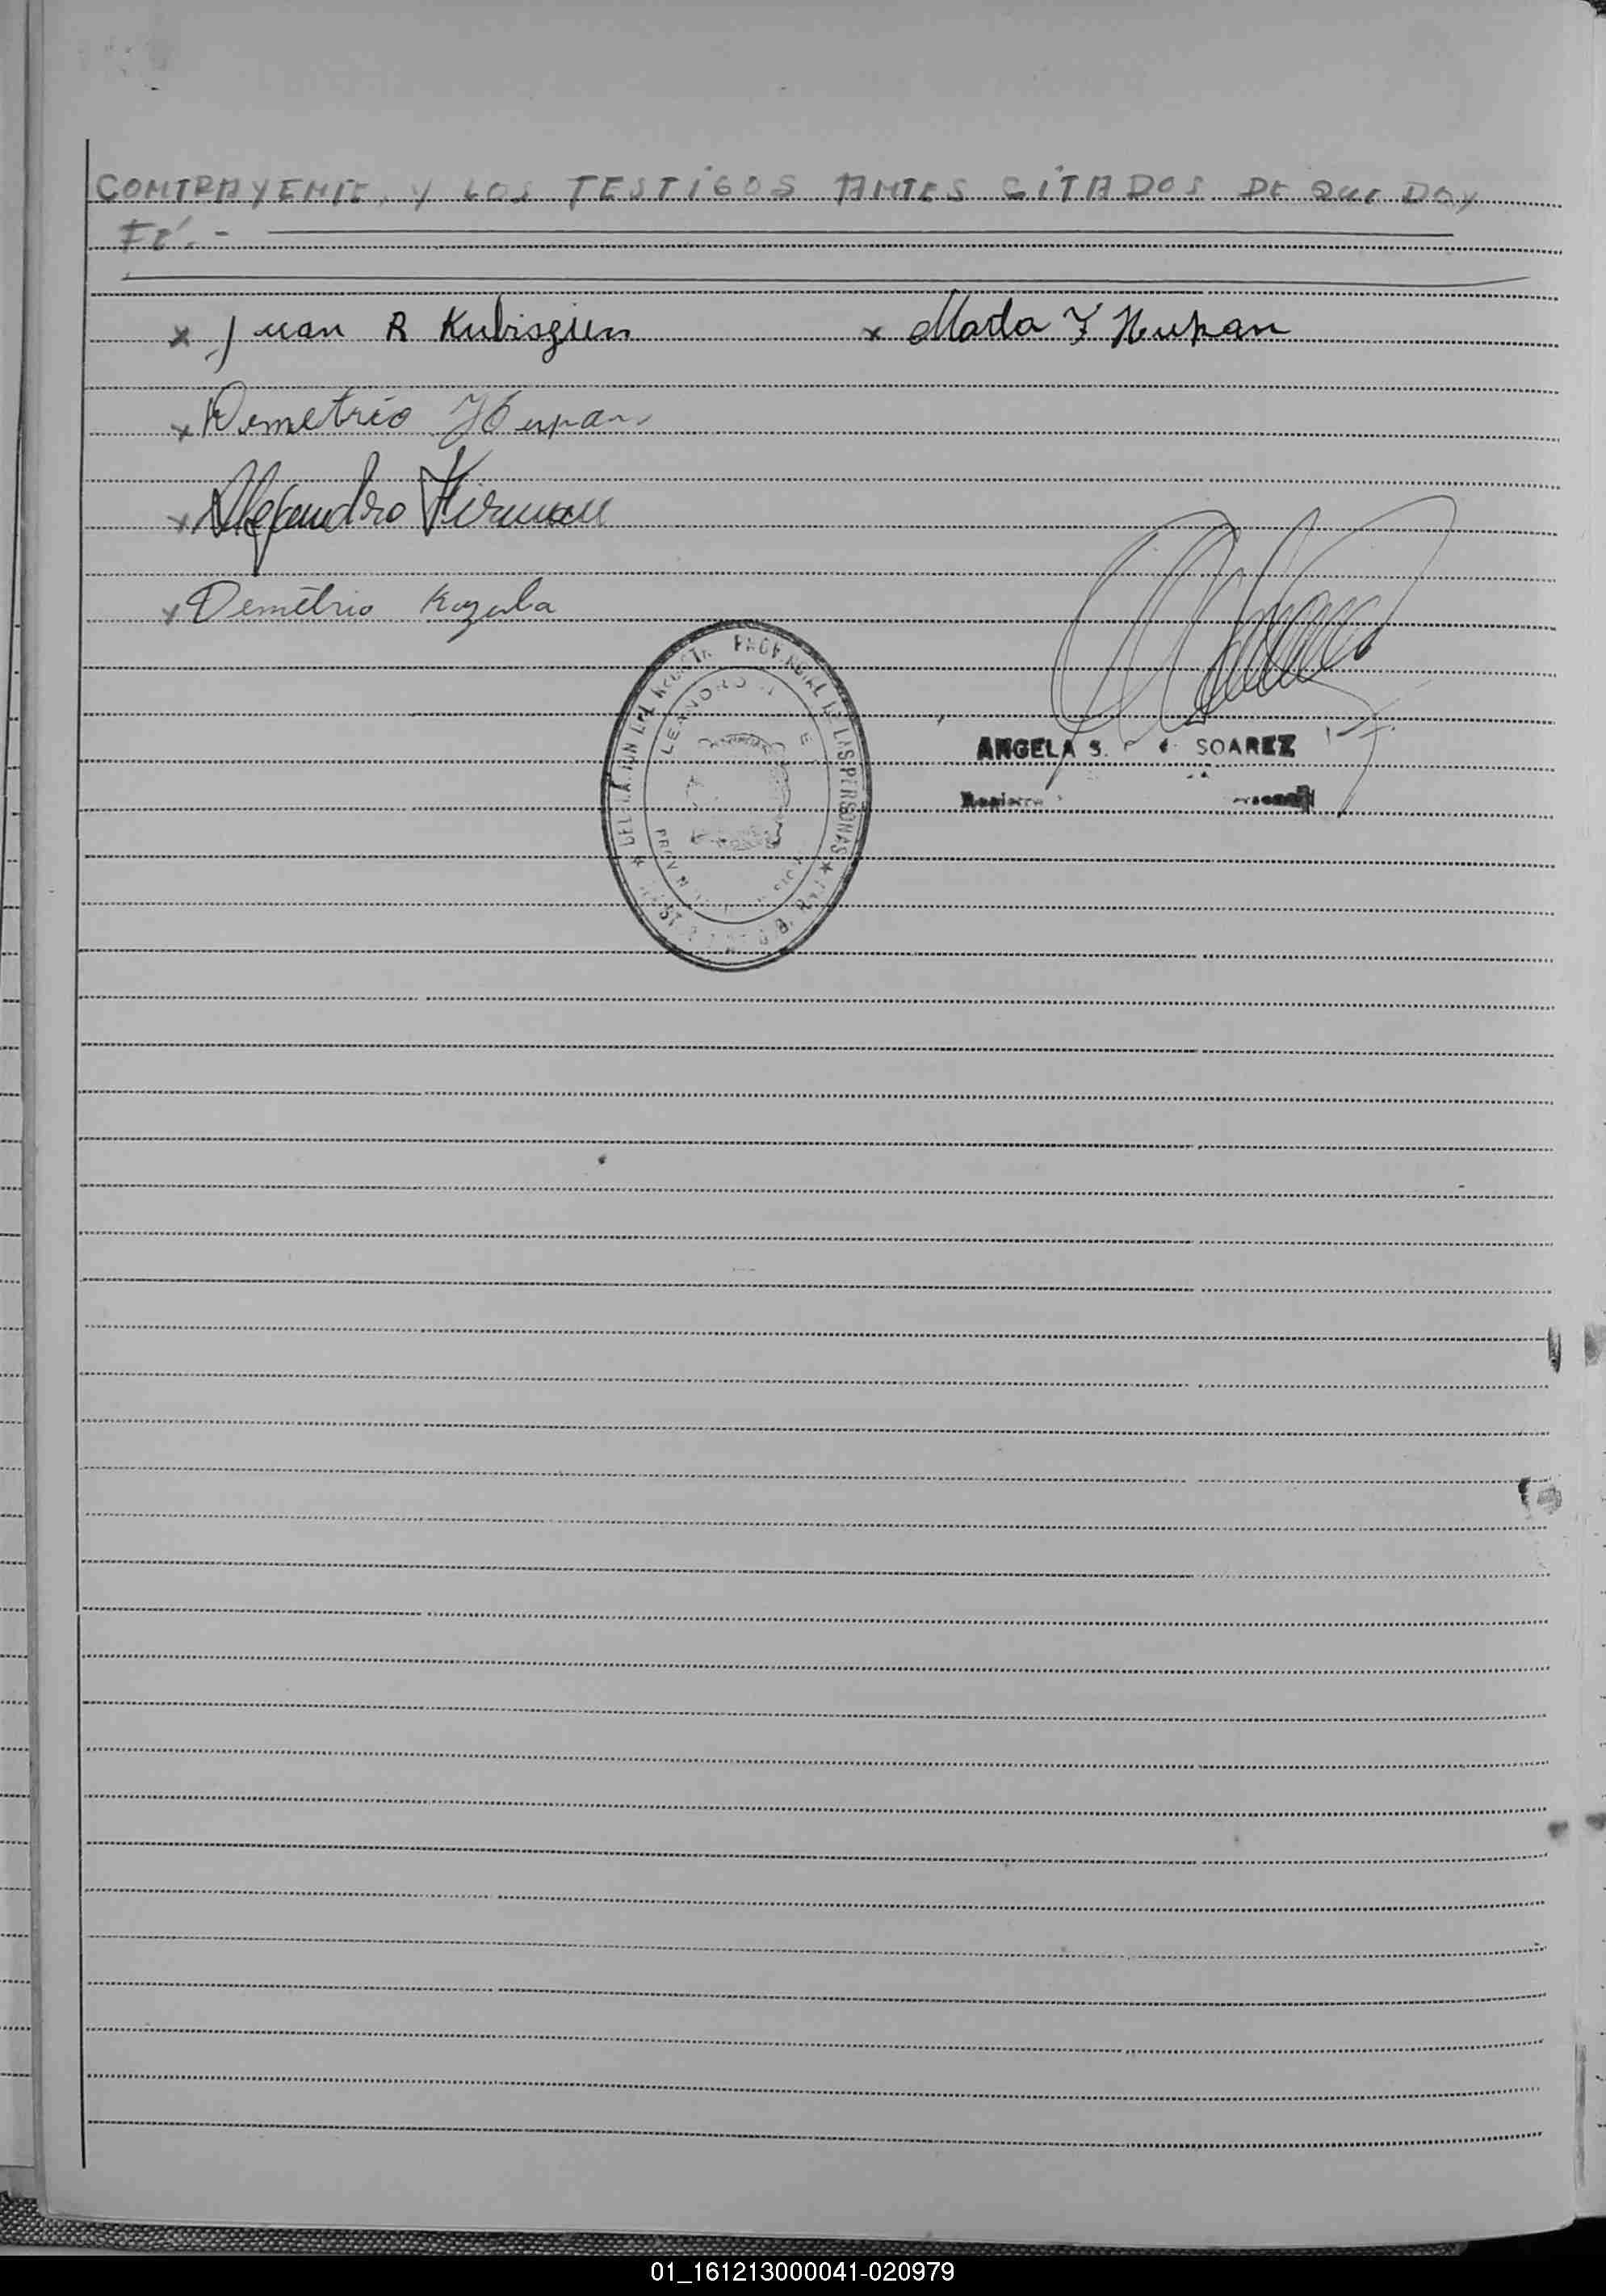 CONTRAYENTE, Y LOS TESTIGOS ANTES CITADOS DE QUE DOY
FÉ.-
x Juan R Kubiszien x Marta F Hupan
x Demetrio Hupan
x Alejandro Hirman
x Demétrio Kozuba
PROVINCIAL DE LAS PERSONAS
LEANDRO N
ANGELA S. SOAREZ
01_161213000041-020979